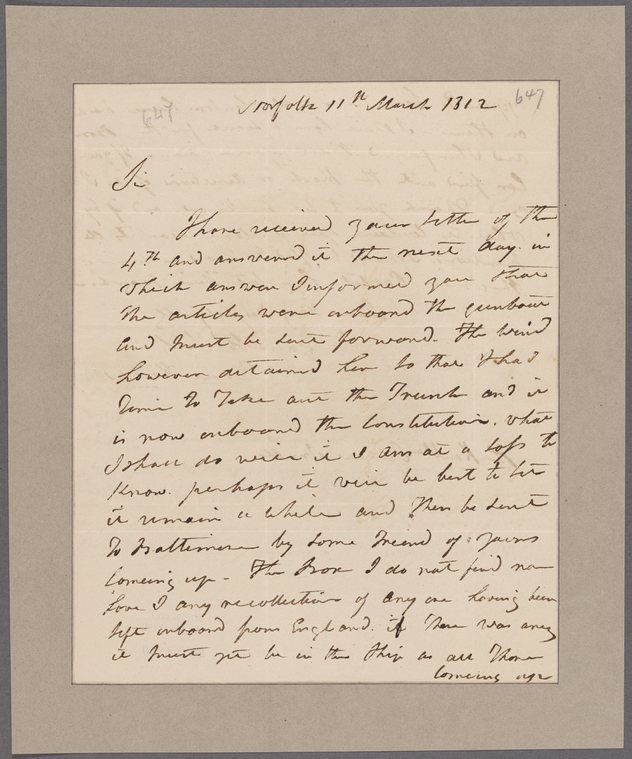 Norfolk 11th March 1812
647
Sir
I have received your letter of the
4th and answered it the next day. in
which answer I informed you that
the articles were onboard the gunboat
and must be sent forward. The wind
however detained her so that I had
time to Take out the Trunk and it
is now onboard the Constitution. what
I shall do with it I am at a loss to
know. perhaps it will be best to let
it remain a while and then be sent
To Baltimore by some Friend of yours
Comeing up - The Box I do not find nor
have I any recollection of any one having been
left onboard from England. if there was any
it must yet be in the Ship as all those
Comeing up